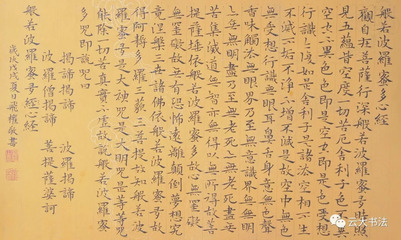 般若波羅蜜多心經
觀自在菩薩行深般若波羅蜜多時照
見五蘊皆空度一切苦厄舍利子色不異
空空不異色色即是空空即是色受想
行識亦復如是舍利子是諸法空相不生
不滅不垢不淨不增不減是故空中無色
無受想行識無眼耳鼻舌身意無色聲
香味觸法無眼界乃至無意識界無無明
亦無無明盡乃至無老死亦無老死盡無
苦集滅道無智亦無得以無所得故菩
提薩埵依般若波羅蜜多故心無罣礙
無罣礙故無有恐怖遠離顛倒夢想究
竟涅槃三世諸佛依般若波羅蜜多故
得阿耨多羅三藐三菩提故知般若波
羅蜜多是大神咒是大明咒是無上咒是無等等咒
能除一切苦真實不虛故說般若波羅蜜
多咒即說咒曰
揭諦揭諦 波羅揭諦
波羅僧揭諦 菩提薩婆訶
般若波羅蜜多心經
戊戌夏 敬書
云大书法